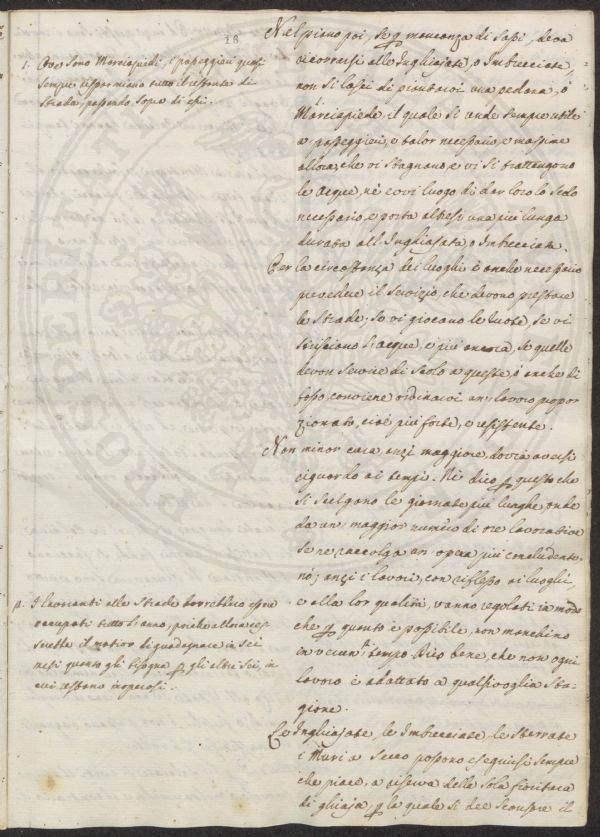 18
1. Ove sono Marciapiedi, i passeggieri quasi
sempre risparmiano tutto il restante di
Strada, passando sopra di essi.
Nel piano poi, se p mancanza di Sassi, devasi
ricorrersi alle Inghiajate, o Imbrecciate,
non si lasci di piantarci una pedana, o
1. Marciapiede, il quale si rende sempre utile
a passeggieri, e talor necessario, e massime
allora, che vi stagnano, e vi si trattengono
le Acque, nè evvi luogo di dar loro lo scolo
necessario, e porta altresì una più lunga
durata all'Inghiajata, o Imbrecciata.
Per la circostanza dei luoghi è anche necessario
prevedere il Servizio, che devono prestare
le Strade; se vi giocano le ruote, se vi
strisciano l'acque; e più ancora, se quelle
devon servire di scolo a queste, o anche di
fosso, conviene ordinarci un lavoro propor
zionato, cioè più forte, e resistente.
Non minor cura anzi maggiore dovrà aversi
riguardo ai tempi. Nè dico p questo che
si scelgono le giornate più lunghe, onde
da un maggior numero di ore lavorative
se ne raccolga un opera più concludente,
nò; anzi i lavori, con riflesso ai luoghi,
e alla lor qualità, vanno regolati in modo
che p quanto è possibile, non manchino
2. in verun tempo. Dico bene, che non ogni
lavoro è adattato a qualsivoglia Sta-
gione.
2. I lavoranti alle Strade dovrebbero essere
occupati tutto l'anno, poichè allora ces-
serebbe il motivo di guadagnare in sei
mesi quanto gli bisogna p gli altri sei, in
cui restano inoperosi.
Le Inghiajate, le Imbrecciate, le Sterrate
i Muri a Secco possono eseguirsi sempre
che piace, a riserva della sola fioritura
di ghiaja, p la quale si dee scansare il